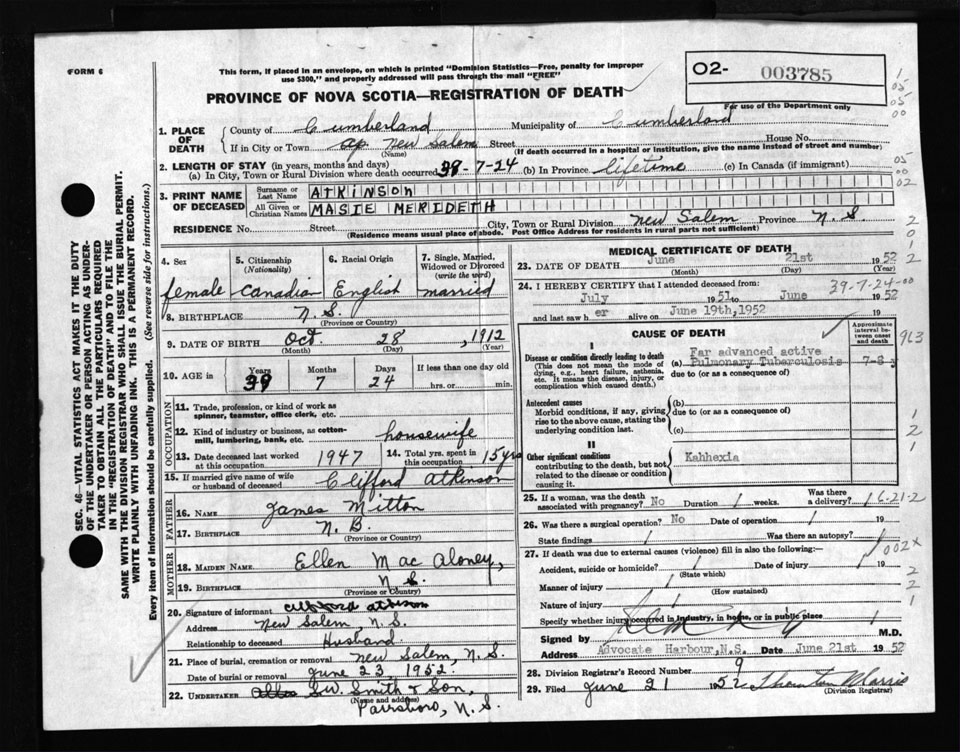 FORM 6
This form, if placed in an envelope, on which is printed "Dominion Statistics—Free, penalty for improper
use $300," and properly addressed will pass through the mail "FREE"
PROVINCE OF NOVA SCOTIA—REGISTRATION OF DEATH
O2- 003785
For use of the Department only
1. PLACE OF DEATH { County of Cumberland Municipality of Cumberland
If in City or Town New Salem Street House No.
(Name) (If death occurred in a hospital or institution, give the name instead of street and number)
2. LENGTH OF STAY (in years, months and days)
(a) In City, Town or Rural Division where death occurred 39-7-24 (b) In Province lifetime (c) In Canada (if immigrant)
3. PRINT NAME OF DECEASED { Surname or Last Name ATKINSON
All Given or Christian Names MASIE MERIDETH
RESIDENCE No. Street City, Town or Rural Division New Salem Province N.S.
(Residence means usual place of abode. Post Office Address for residents in rural parts not sufficient)
4. Sex 5. Citizenship (Nationality) 6. Racial Origin 7. Single, Married, Widowed or Divorced (write the word)
female Canadian English married
8. BIRTHPLACE N.S.
(Province or Country)
9. DATE OF BIRTH Oct. 28, 1912
(Month) (Day) (Year)
10. AGE in Years Months Days If less than one day
39 7 24 hrs. or min.
OCCUPATION
11. Trade, profession, or kind of work as
spinner, teamster, office clerk, etc.
12. Kind of industry or business, as cotton-
mill, lumbering, bank, etc. housewife
13. Date deceased last worked
at this occupation 1947 14. Total yrs. spent in
this occupation 15 yrs
15. If married give name of wife
or husband of deceased Clifford Atkinson
FATHER
16. NAME James Mitton
17. BIRTHPLACE N.B.
(Province or Country)
MOTHER
18. MAIDEN NAME Ellen Mac Aloney,
19. BIRTHPLACE N.S.
(Province or Country)
20. Signature of informant Clifford Atkinson
Address New Salem, N.S.
Relationship to deceased Husband
21. Place of burial, cremation or removal New Salem, N.S.
Date of burial or removal June 23, 1952.
22. UNDERTAKER S.W. Smith & Son,
(Name and address)
Parrsboro, N.S.
MEDICAL CERTIFICATE OF DEATH
23. DATE OF DEATH June 21st 1952
(Month) (Day) (Year)
39-7-24-00
24. I HEREBY CERTIFY that I attended deceased from:
July 1951 to June 1952
and last saw her alive on June 19th,1952
CAUSE OF DEATH
Approximate interval between cause and death
I
Disease or condition directly leading to death
(This does not mean the mode of
dying, e.g., heart failure, asthenia,
etc. It means the disease, injury, or
complication which caused death.)
(a) Far advanced active
Pulmonary Tuberculosis 7-8 y
due to (or as a consequence of)
Antecedent causes
Morbid conditions, if any, giving
rise to the above cause, stating the
underlying condition last.
(b)
due to (or as a consequence of)
(c)
II
Other significant conditions
contributing to the death, but not
related to the disease or condition
causing it.
Kahhexia
25. If a woman, was the death
associated with pregnancy? No Duration / weeks. Was there
a delivery? /
26. Was there a surgical operation? No Date of operation / 19
State findings / Was there an autopsy? /
27. If death was due to external causes (violence) fill in also the following:—
Accident, suicide or homicide? / Date of injury / 19
(State which)
Manner of injury /
(How sustained)
Nature of injury /
Specify whether injury occurred in industry, in home, or in public place
Signed by M.D.
Address Advocate Harbour,N.S. Date June 21st 1952
28. Division Registrar's Record Number 9
29. Filed June 21 1952 Thornton Morris
(Division Registrar)
SEC. 46—VITAL STATISTICS ACT MAKES IT THE DUTY
OF THE UNDERTAKER OR PERSON ACTING AS UNDER-
TAKER TO OBTAIN ALL THE PARTICULARS REQUIRED
IN THE "REGISTRATION OF DEATH" AND TO FILE THE
SAME WITH THE DIVISION REGISTRAR WHO SHALL ISSUE THE BURIAL PERMIT.
WRITE PLAINLY WITH UNFADING INK. THIS IS A PERMANENT RECORD.
Every item of information should be carefully supplied. (See reverse side for instructions.)
05
00
05
00
02
2
0
1
2
913
1
2
1
16-21-2
002X
2
2
1
1